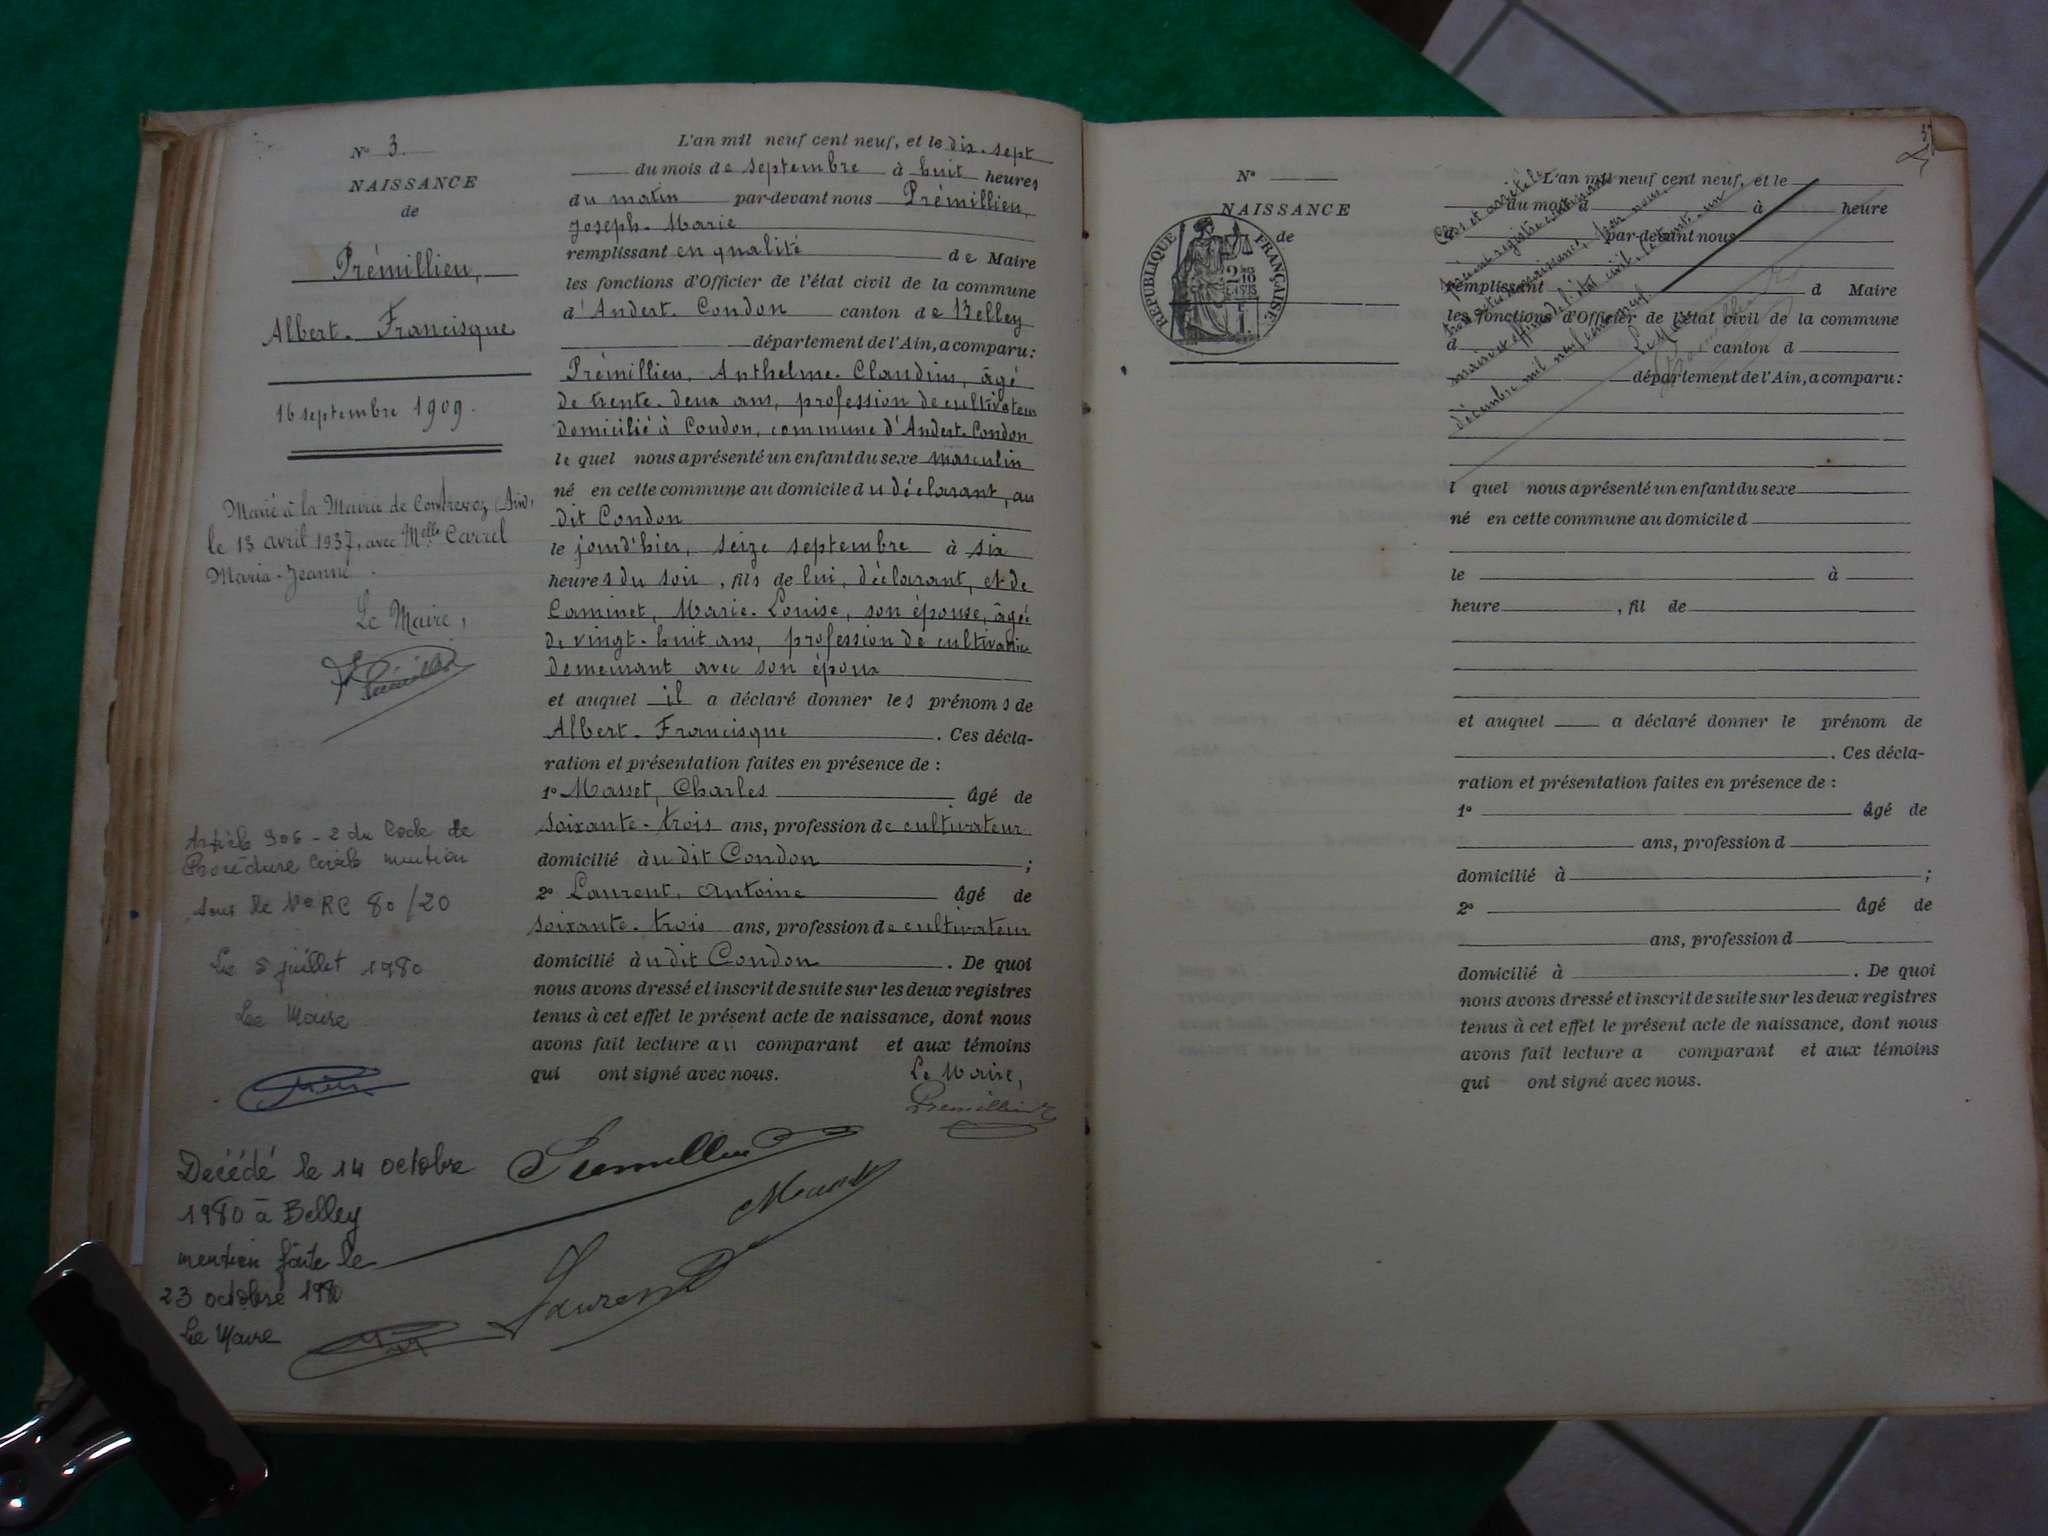 N° 3.
NAISSANCE
de
Prémillieu,
Albert-Francisque
16 septembre 1909.
Marié à la Mairie de Contrevoz (Ain)
le 13 avril 1937, avec Melle Carrel
Maria-Jeanne.
Le Maire,
Article 906-2 du Code de
Procédure Civile mention
sous le N° RC 80/20
Le 8 juillet 1980
Le Maire
Décédé le 14 octobre
1980 à Belley
mention faite le
23 octobre 1980
Le Maire
L'an mil neuf cent neuf, et le dix-sept
du mois de septembre à huit heures
du matin par-devant nous Prémillieu,
Joseph-Marie
remplissant en qualité de Maire
les fonctions d'Officier de l'état civil de la commune
d'Andert-Condon canton de Belley
département de l'Ain, a comparu:
Prémillieu, Anthelme-Claudius, âgé
de trente-deux ans, profession de cultivateur
domicilié à Condon, commune d'Andert-Condon
lequel nous a présenté un enfant du sexe masculin
né en cette commune au domicile du déclarant, au
dit Condon
le jourd'hier, seize septembre à six
heures du soir, fils de lui, déclarant, et de
Caminet, Marie-Louise, son épouse, âgée
de vingt-huit ans, profession de cultivatrice
demeurant avec son époux
et auquel il a déclaré donner les prénoms de
Albert-Francisque. Ces décla-
ration et présentation faites en présence de:
1° Masset, Charles âgé de
soixante-trois ans, profession de cultivateur
domicilié audit Condon;
2° Laurent, Antoine âgé de
soixante-trois ans, profession de cultivateur
domicilié audit Condon. De quoi
nous avons dressé et inscrit de suite sur les deux registres
tenus à cet effet le présent acte de naissance, dont nous
avons fait lecture au comparant et aux témoins
qui ont signé avec nous.
Le Maire,
Premillieu
Premillieu
Masset
Laurent
N°
NAISSANCE
de
RÉPUBLIQUE FRANÇAISE
Clos et arrêté le
présent registre contenant
trois actes de naissance, par nous
maire et officier de l'état civil, le trente-un
décembre mil neuf cent neuf
Le Maire
L'an mil neuf cent neuf, et le
du mois d à heure
par-devant nous
remplissant d Maire
les fonctions d'Officier de l'état civil de la commune
d canton d
département de l'Ain, a comparu:
l quel nous a présenté un enfant du sexe
né en cette commune au domicile d
le à
heure , fil de
et auquel a déclaré donner le prénom de
. Ces décla-
ration et présentation faites en présence de:
1° âgé de
ans, profession d
domicilié à ;
2° âgé de
ans, profession d
domicilié à . De quoi
nous avons dressé et inscrit de suite sur les deux registres
tenus à cet effet le présent acte de naissance, dont nous
avons fait lecture a comparant et aux témoins
qui ont signé avec nous.